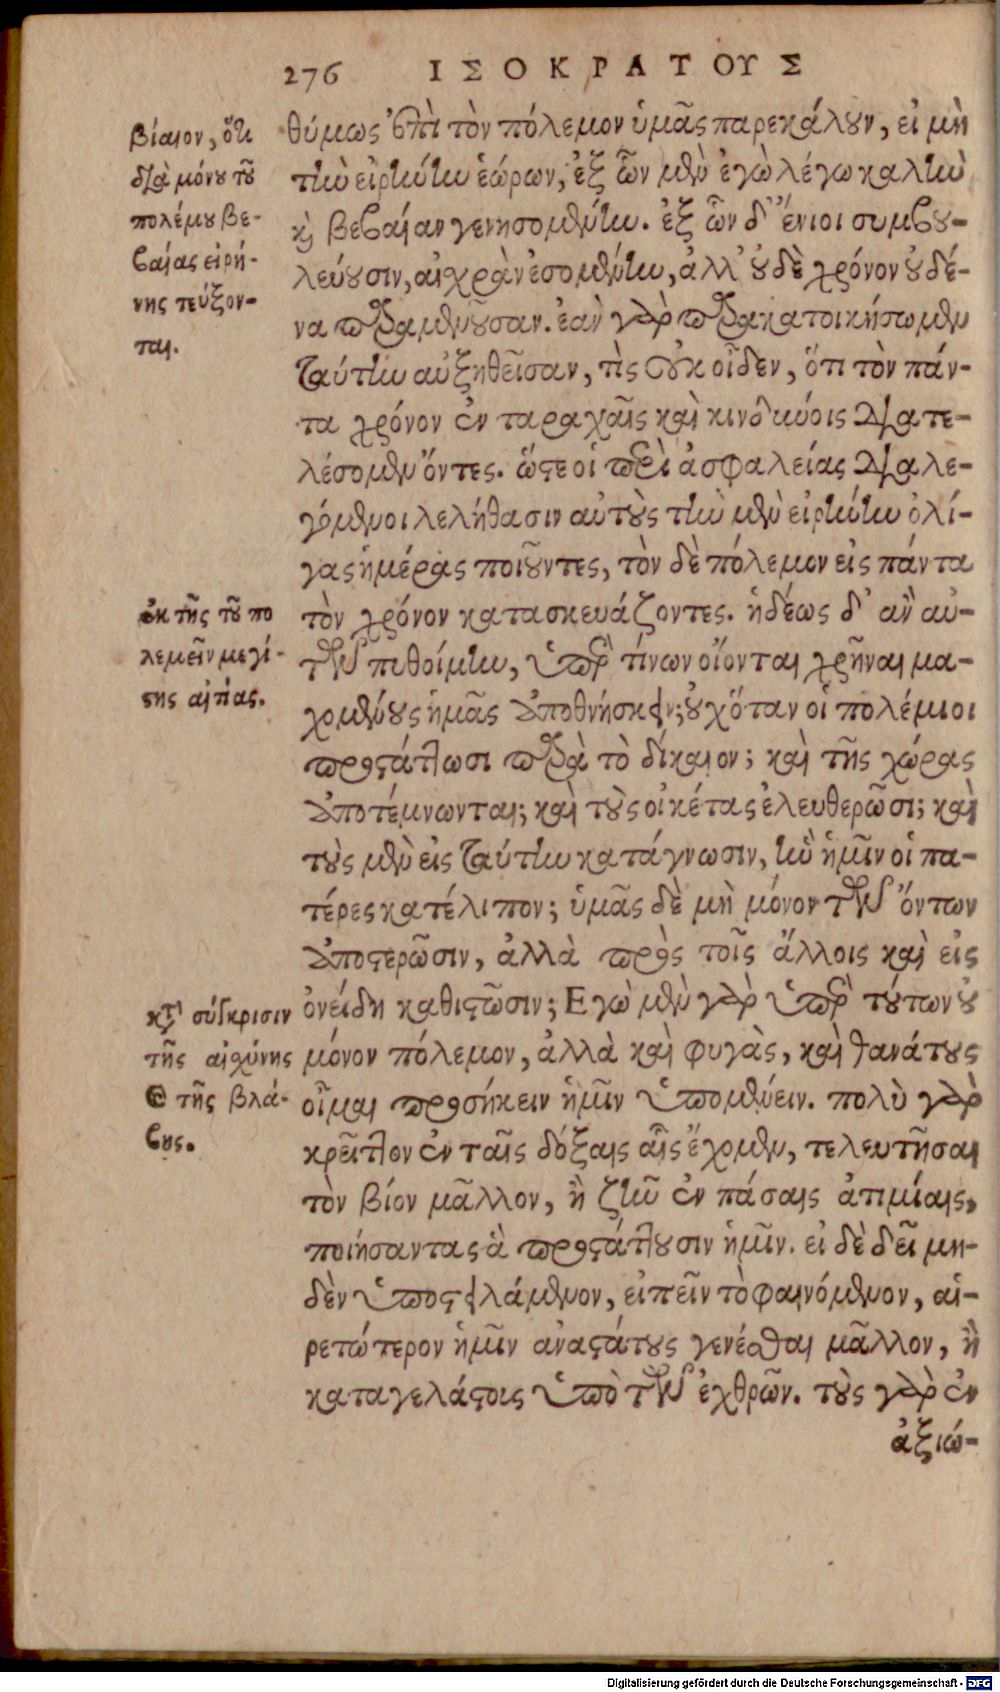 276 ΙΣΟΚΡΑΤΟΥΣ
βίαιον, ὅτι
διὰ μόνου τοῦ
πολέμου βε-
βαίας εἰρή-
νης τεύξον-
ται.
θύμως ἐπὶ τὸν πόλεμον ὑμᾶς παρεκάλουν, εἰ μὴ
τὴν εἰρήνην ἑώρων, ἐξ ὧν μὲν ἐγὼ λέγω καλὴν
καὶ βεβαίαν γενησομένην. ἐξ ὧν δ' ἔνιοι συμβου-
λεύουσιν, αἰχρὰν ἐσομένην, ἀλλ' οὐδὲ χρόνον οὐδέ-
να παραμενοῦσαν. ἐὰν γὰρ παρακατοικήσωμεν
ταύτην αὐξηθεῖσαν, τίς οὐκ οἶδεν, ὅτι τὸν πάν-
τα χρόνον ἐν ταραχαῖς καὶ κινδύνοις διατε-
λέσομεν ὄντες. ὥστε οἱ περὶ ἀσφαλείας διαλε-
γόμενοι λελήθασιν αὐτοὺς τὴν μὲν εἰρήνην ὀλί-
γας ἡμέρας ποιοῦντες, τὸν δὲ πόλεμον εἰς πάντα
ἐκ τῆς τοῦ πο
λεμεῖν μεγί-
στης αἰτίας.
τὸν χρόνον κατασκευάζοντες. ἡδέως δ' ἂν αὐ-
τῶν πυθοίμην, ὑπὲρ τίνων οἴονται χρῆναι μα-
χομένους ἡμᾶς ἀποθνήσκειν; οὐχ ὅταν οἱ πολέμιοι
προστάττωσι παρὰ τὸ δίκαιον; καὶ τῆς χώρας
ἀποτέμνωνται; καὶ τοὺς οἰκέτας ἐλευθερῶσι; καὶ
τοὺς μὲν εἰς ταύτην κατάγνωσιν, ἣν ἡμῖν οἱ πα-
τέρες κατέλιπον; ὑμᾶς δὲ μὴ μόνον τῶν ὄντων
ἀποστερῶσιν, ἀλλὰ πρὸς τοῖς ἄλλοις καὶ εἰς
κατὰ σύγκρισιν
τῆς αἰχύνης
καὶ τῆς βλά-
βης.
ὀνείδη καθιστῶσιν; Εγὼ μὲν γὰρ ὑπὲρ τούτων οὐ
μόνον πόλεμον, ἀλλὰ καὶ φυγὰς, καὶ θανάτους
οἶμαι προσήκειν ἡμῖν ὑπομένειν. πολὺ γὰρ
κρεῖττον ἐν ταῖς δόξαις αἷς ἔχομεν, τελευτῆσαι
τὸν βίον μᾶλλον, ἢ ζῆν ἐν πάσαις ἀτιμίαις,
ποιήσαντας ἃ προστάττουσιν ἡμῖν. εἰ δὲ δεῖ μη-
δὲν ὑποστειλάμενον, εἰπεῖν τὸ φαινόμενον, αἱ-
ρετώτερον ἡμῖν ἀναστάτους γενέσθαι μᾶλλον, ἢ
καταγελάστοις ὑπὸ τῶν ἐχθρῶν. τοὺς γὰρ ἐν
ἀξιώ-
Digitalisierung gefördert durch die Deutsche Forschungsgemeinschaft - DFG